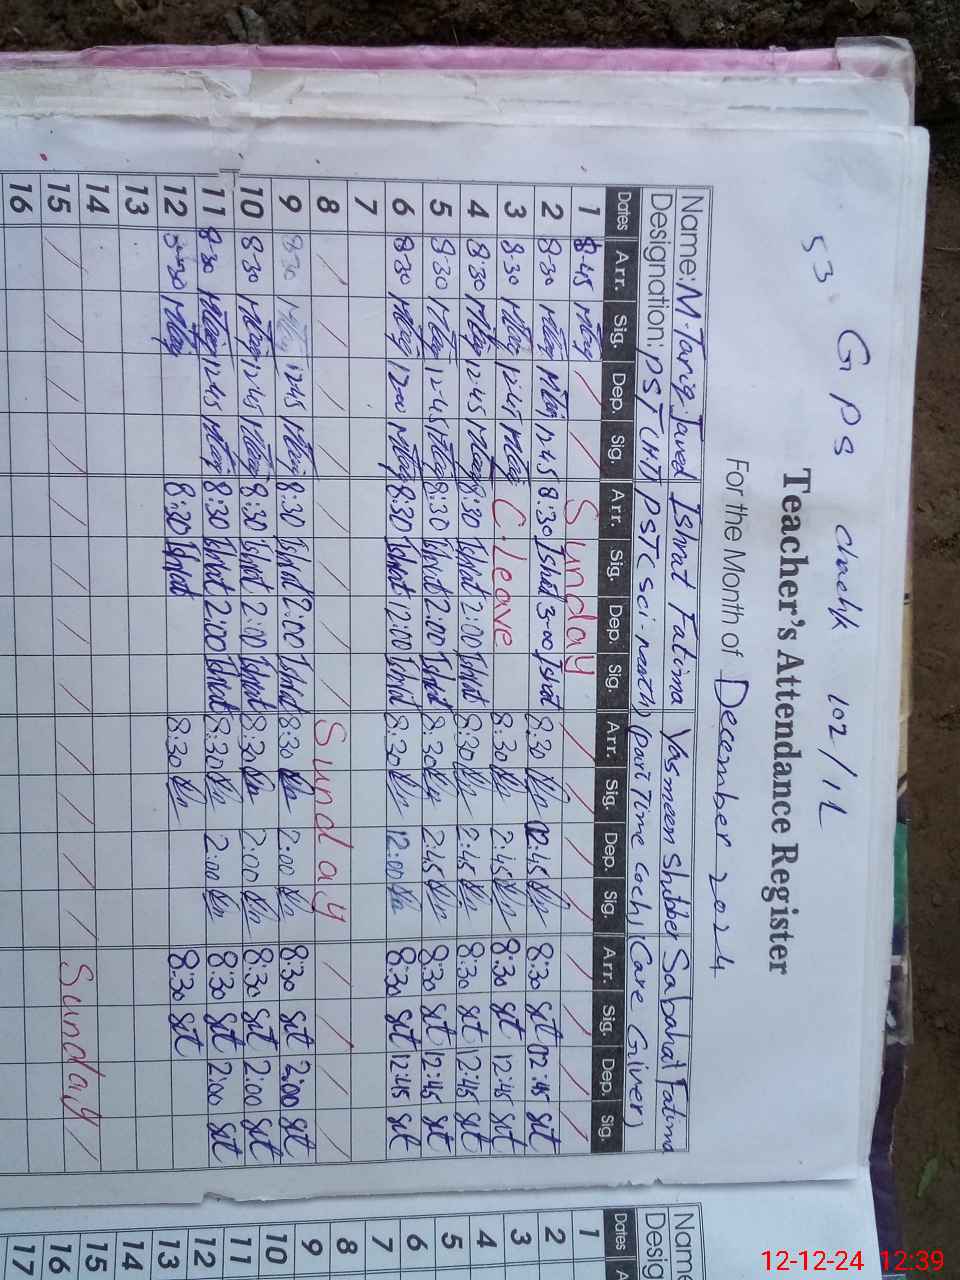 53 GPS chack 102/1L
Teacher's Attendance Register
For the Month of December 2024
Name: M-Tariq Javed Ishrat Fatima Yasmeen Shabber Sabahat Fatima
Designation: PST (HT) PST (Sci-math) (part Time Coch) (Care Giver)
Dates Arr. Sig. Dep. Sig. Arr. Sig. Dep. Sig. Arr. Sig. Dep. Sig. Arr. Sig. Dep. Sig.
1 8-45 Sunday
2 8-30 12-45 8:30 Ishrat 3-00 Ishrat 8:30 02:45 8:30 st 02:45 st
3 8-30 12-45 C-Leave 8:30 2:45 8:30 st 12:45 st
4 8-30 12-45 8:30 Ishrat 2:00 Ishrat 8:30 2:45 8:30 st 12:45 st
5 8-30 12-45 8:30 Ishrat 2:00 Ishrat 8:30 2:45 8:30 st 12:45 st
6 8-30 12-00 8:30 Ishrat 12:00 Ishrat 8:30 12:00 8:30 st 12:45 st
7
8 Sunday
9 8-30 12-45 8:30 Ishrat 2:00 Ishrat 8:30 2:00 8:30 st 2:00 st
10 8-30 12-45 8:30 Ishrat 2:00 Ishrat 8:30 2:00 8:30 st 2:00 st
11 8-30 12-45 8:30 Ishrat 2:00 Ishrat 8:30 2:00 8:30 st 2:00 st
12 8:30 Ishrat 8:30 8:30 st
13
14
15 Sunday
16
Name
Desig
Dates A
1
2
3
4
5
6
7
8
9
10
11
12
13
14
15
16
17
12-12-24 12:39